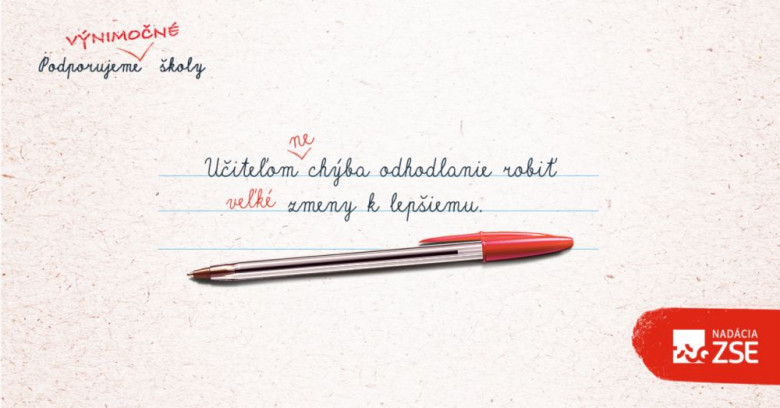 VÝNIMOČNÉ
Podporujeme školy
ne
Učiteľom chýba odhodlanie robiť
veľké zmeny k lepšiemu.
NADÁCIA
ZSE